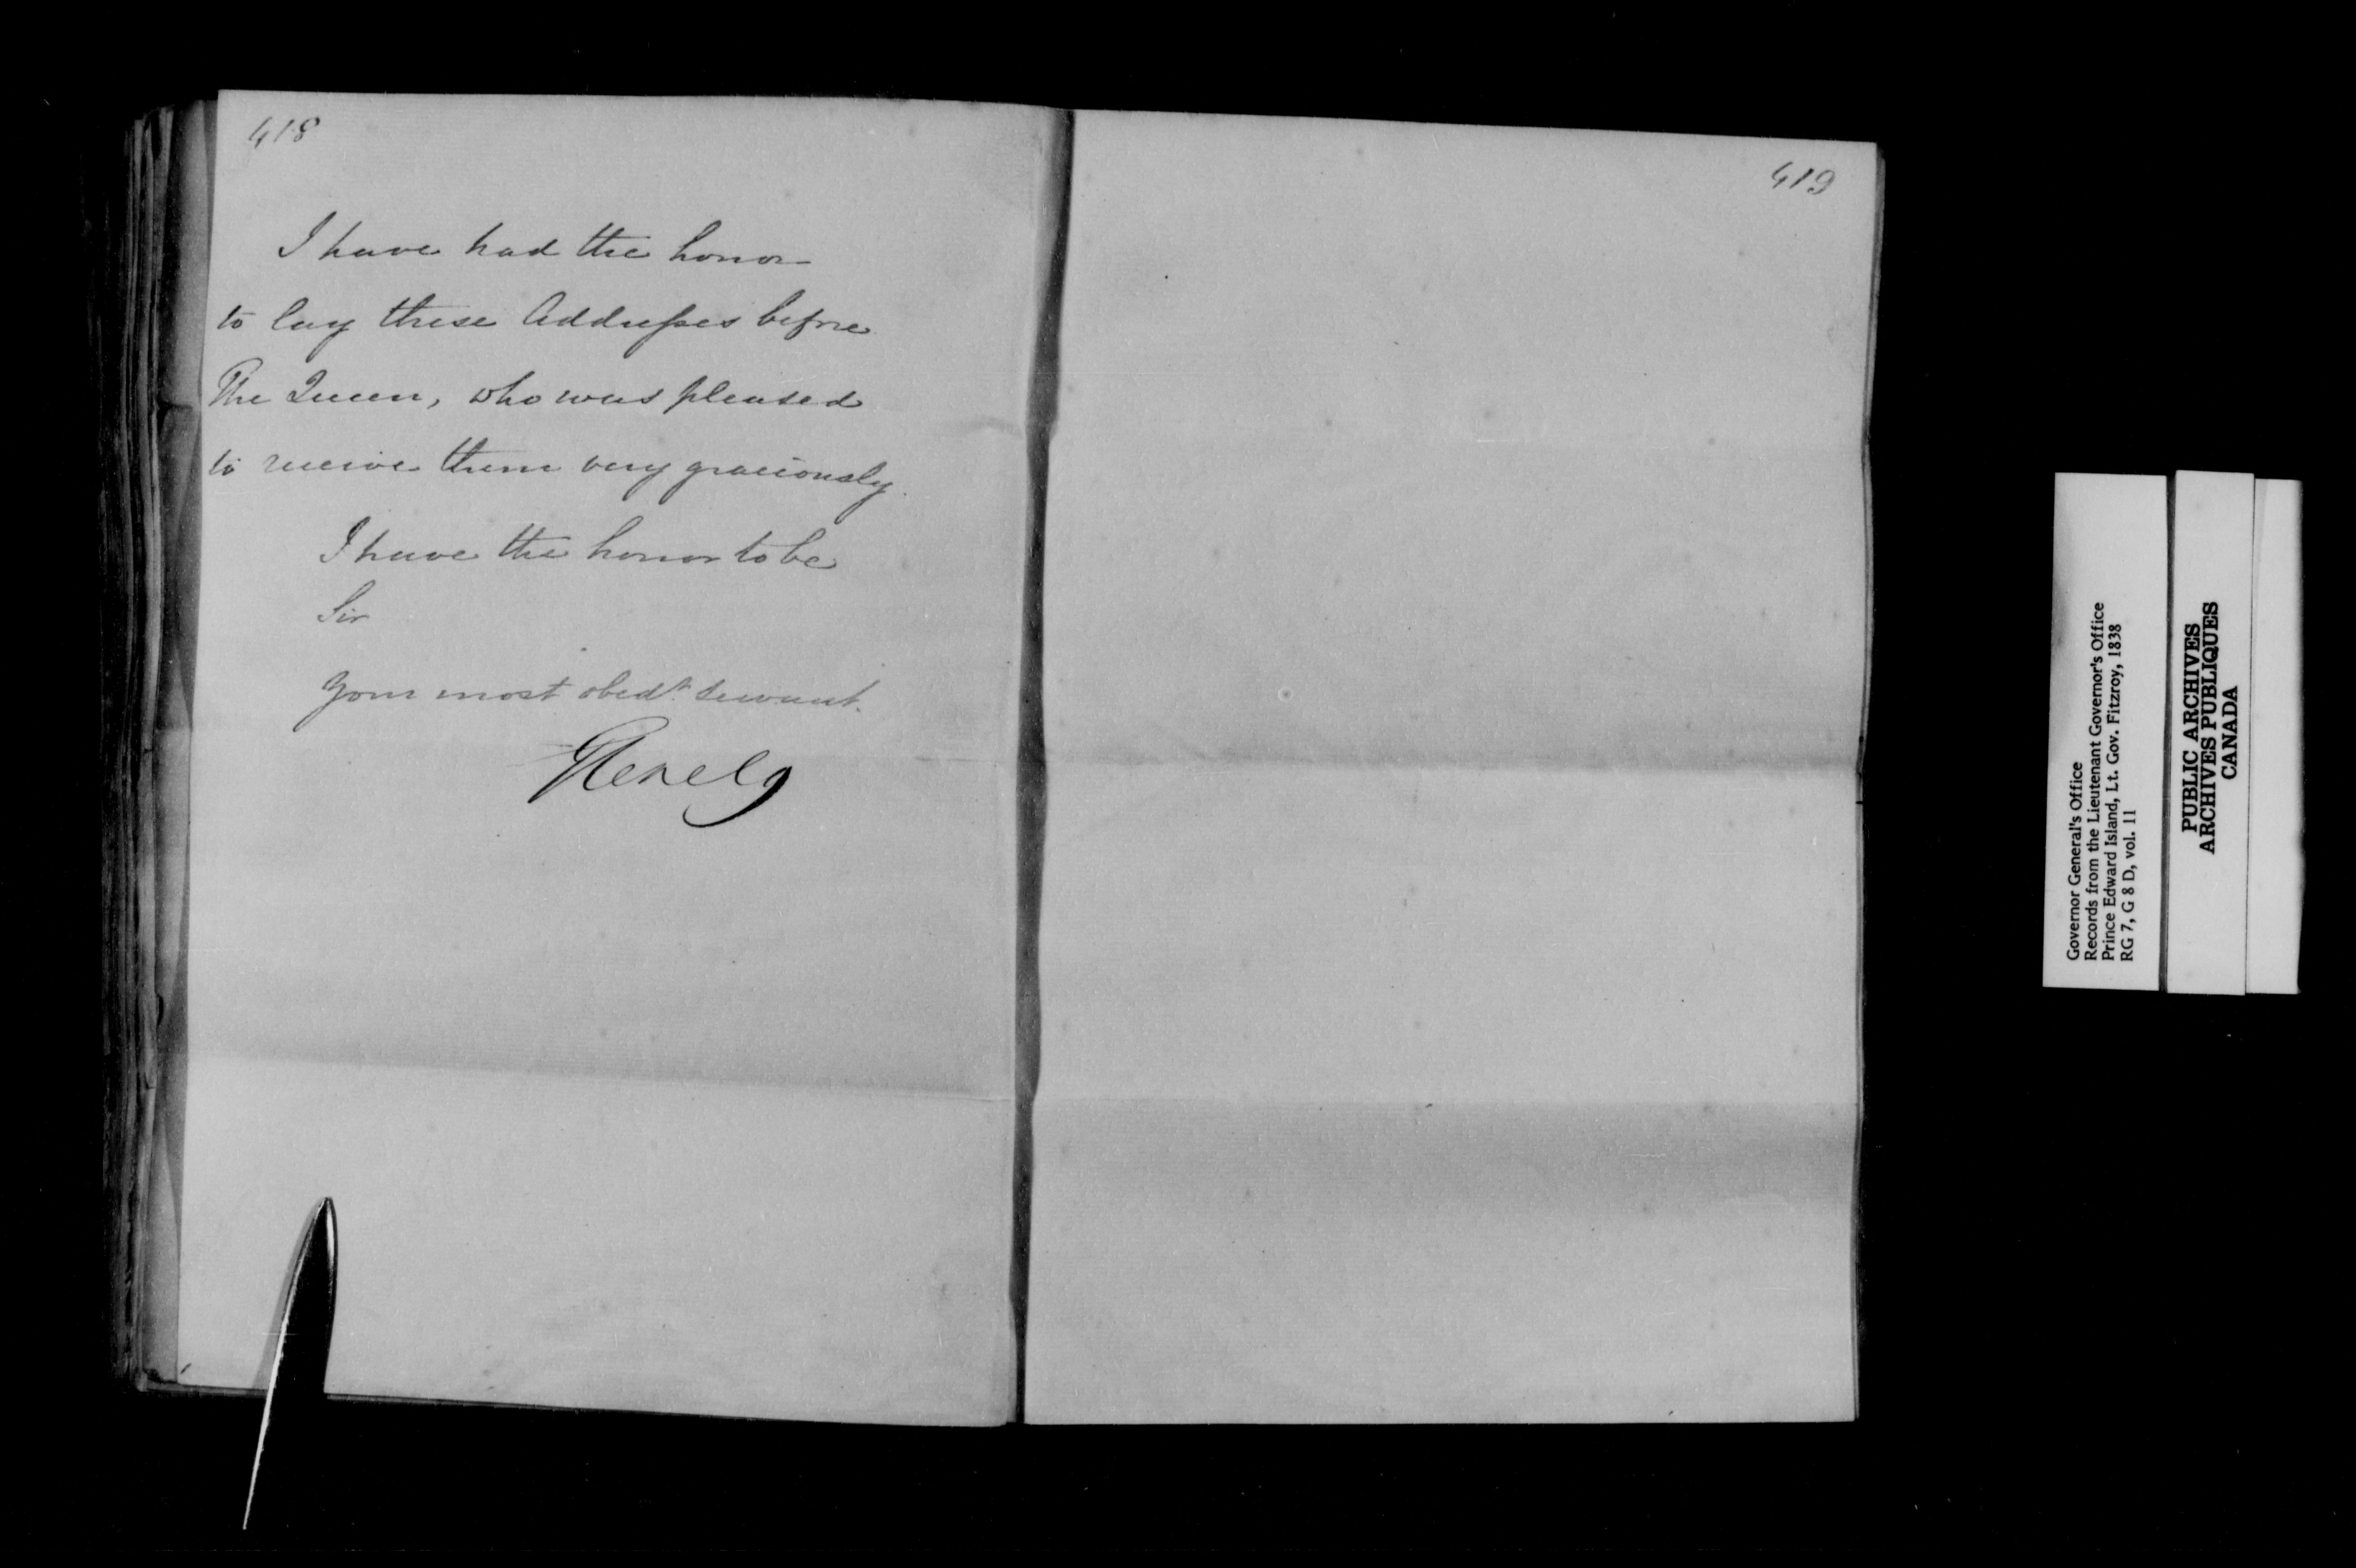 418
I have had the honor
to lay these Addresses before
The Queen, who was pleased
to receive them very graciously.
I have the honor to be
Sir
Your most obedt. servant.
Glenelg
419
Governor General's Office
Records from the Lieutenant Governor's Office
Prince Edward Island, Lt. Gov. Fitzroy, 1838
RG 7, G 8 D, vol. 11
PUBLIC ARCHIVES
ARCHIVES PUBLIQUES
CANADA